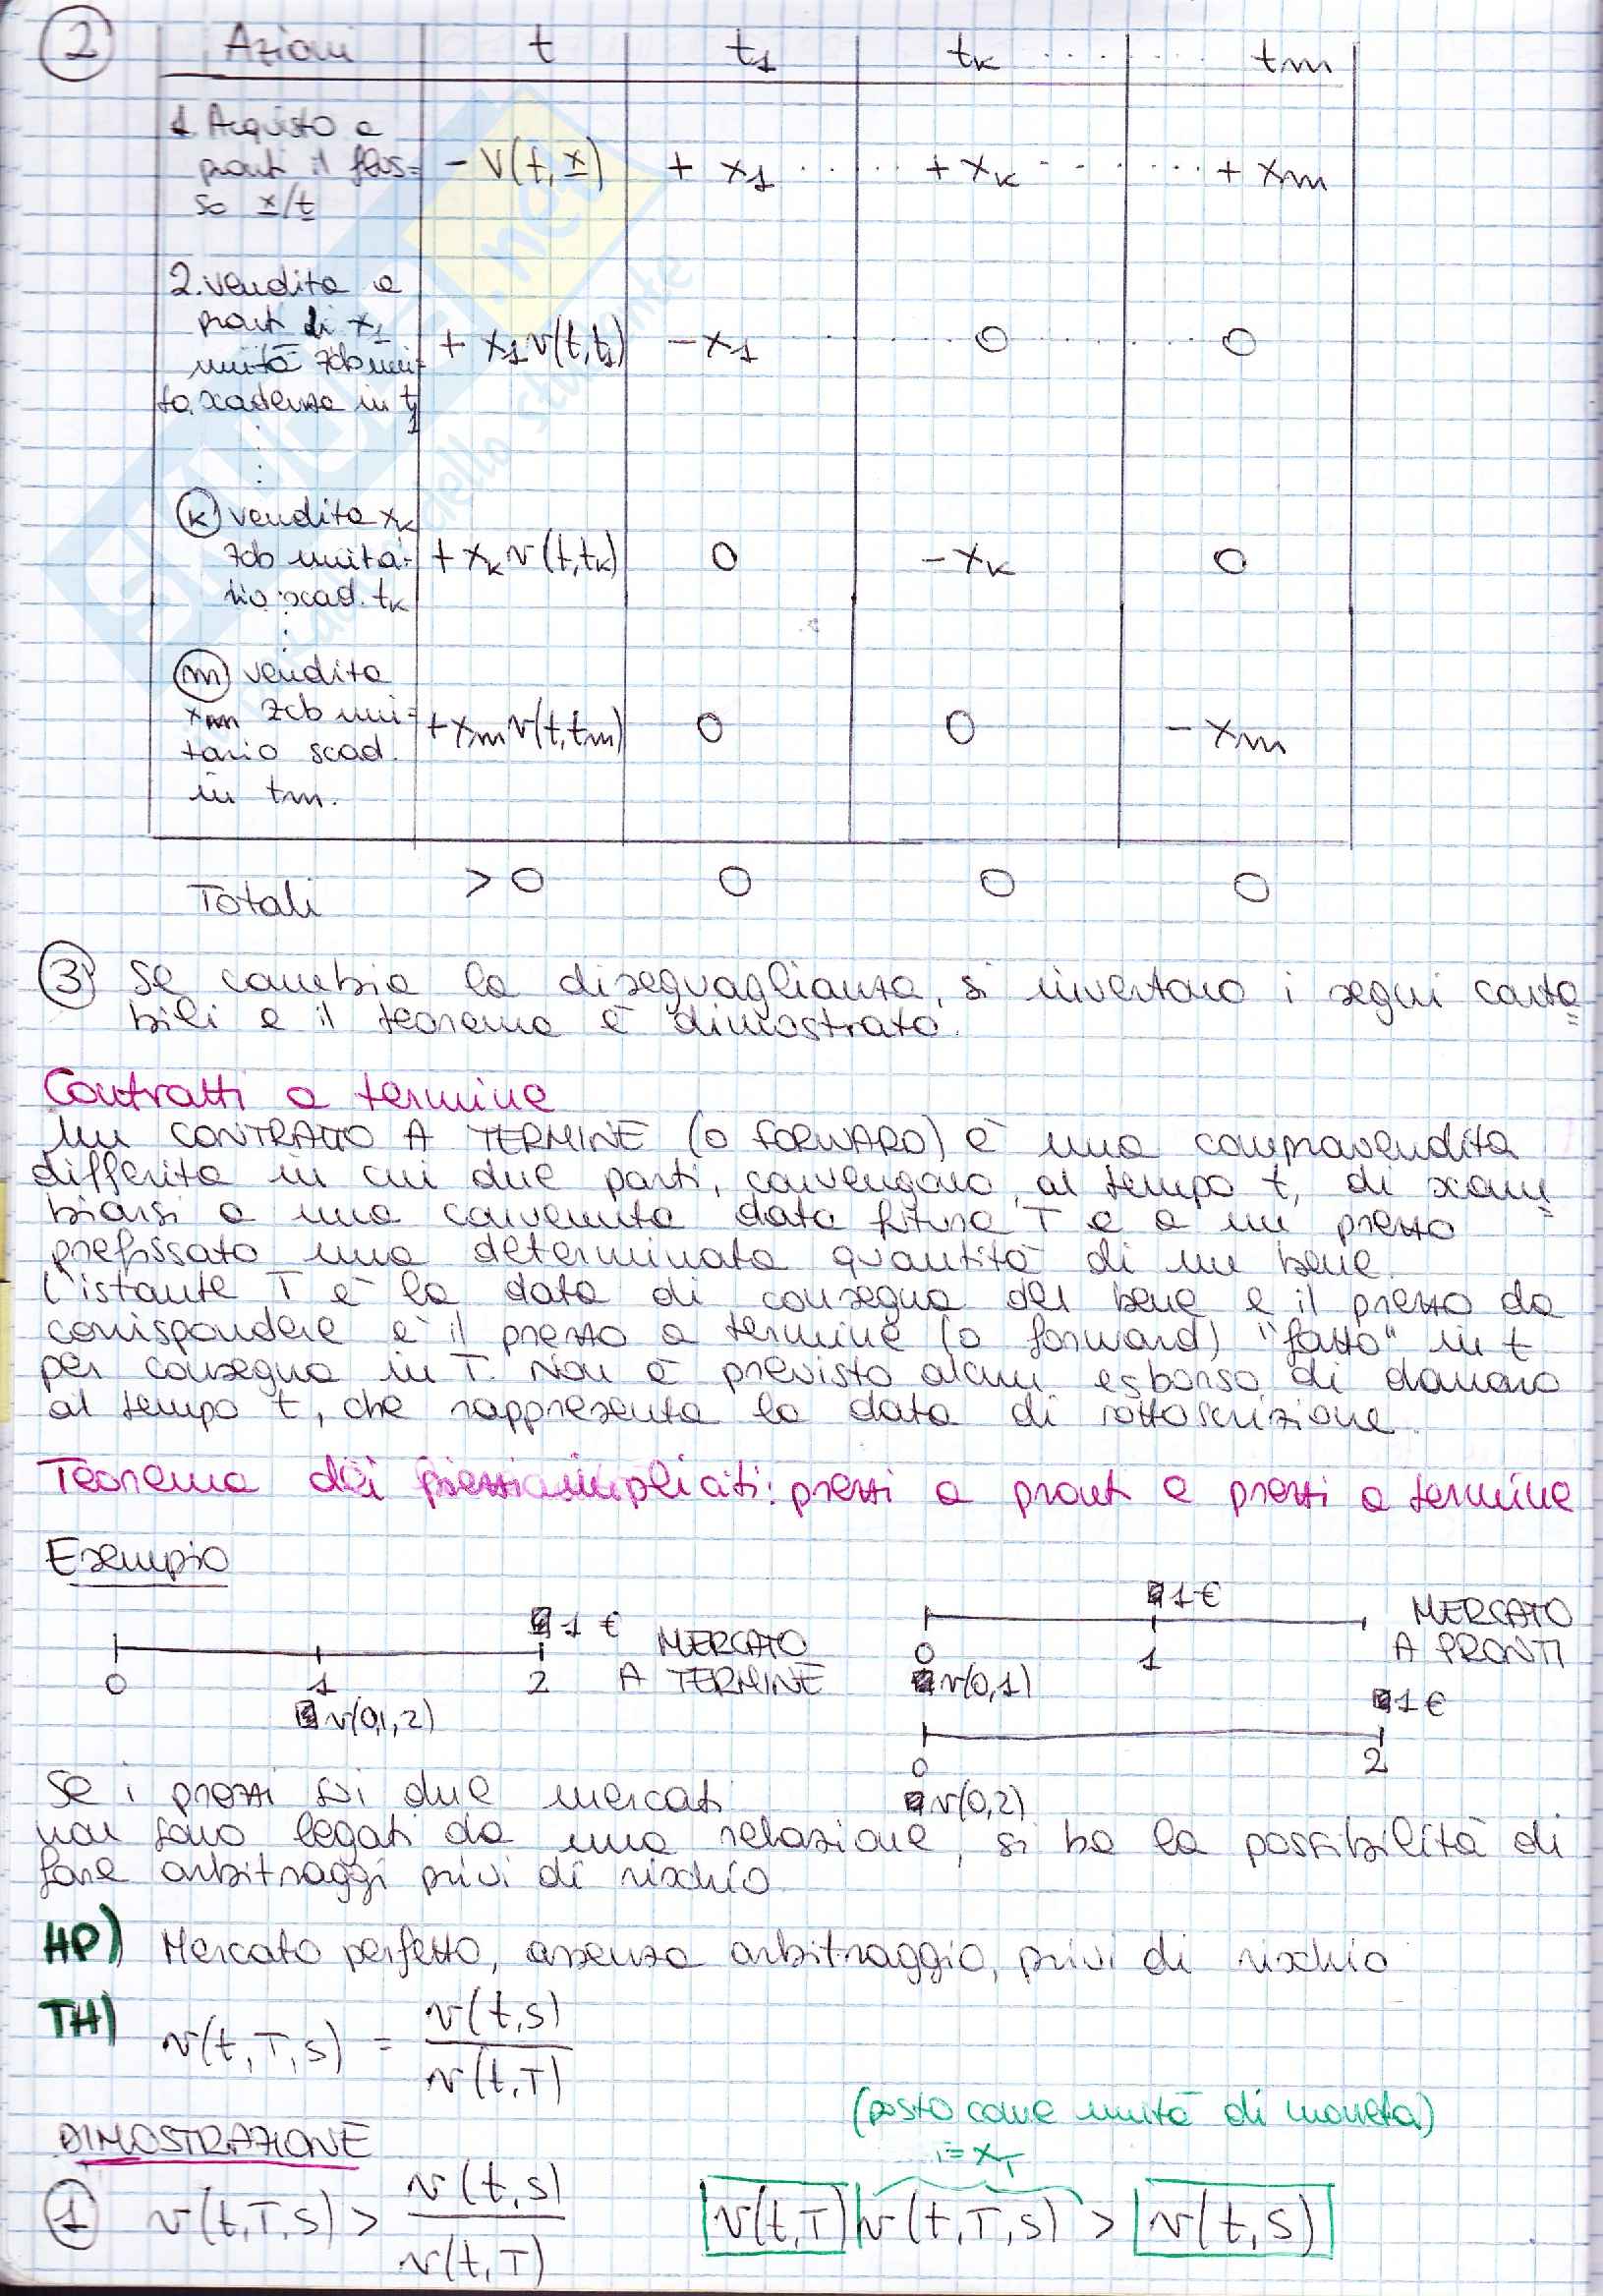 2 Azioni t t1 tk ........ tm
1. Acquisto a
pronti il flus=
so x/t - V(t, x) + x1 ...... + xk - - - - - - + xm
2. vendita a
pronti di x1
unità zcb uni=
ta. scadenza in t1 + x1 v(t,t1) - x1 ........ 0 ........ 0
(k) vendita xk
zcb unita=
rio scad. tk + xk v(t,tk) 0 - xk 0
(m) vendita
xm zcb uni=
tario scad.
in tm. + xm v(t,tm) 0 0 - xm
Totali > 0 0 0 0
3 Se cambia la diseguaglianza, si invertono i segni conta=
bili e il teorema è dimostrato.
Contratti a termine
Un CONTRATTO A TERMINE (o FORWARD) è una compravendita
differita in cui due parti, convengono, al tempo t, di scam=
biarsi a una convenuta data futura T e a un prezzo
prefissato una determinata quantità di un bene.
L'istante T è la data di consegna del bene e il prezzo da
corrispondere è il prezzo a termine (o forward) "fatto" in t
per consegna in T. Non è previsto alcun esborso di danaro
al tempo t, che rappresenta la data di sottoscrizione.
Teorema dei prezzi impliciti: prezzi a pronti e prezzi a termine
Esempio
1 € MERCATO A TERMINE
0 1 2
v(0,1,2)
1 € MERCATO A PRONTI
0 1
v(0,1)
1 €
0 2
v(0,2)
Se i prezzi sui due mercati
non sono legati da una relazione, si ha la possibilità di
fare arbitraggi privi di rischio.
HP) Mercato perfetto, assenza arbitraggio, privi di rischio
TH) v(t,T,s) = v(t,s) / v(t,T)
DIMOSTRAZIONE
(posto come unità di moneta)
:= xT
1 v(t,T,s) > v(t,s) / v(t,T) v(t,T) v(t,T,s) > v(t,s)